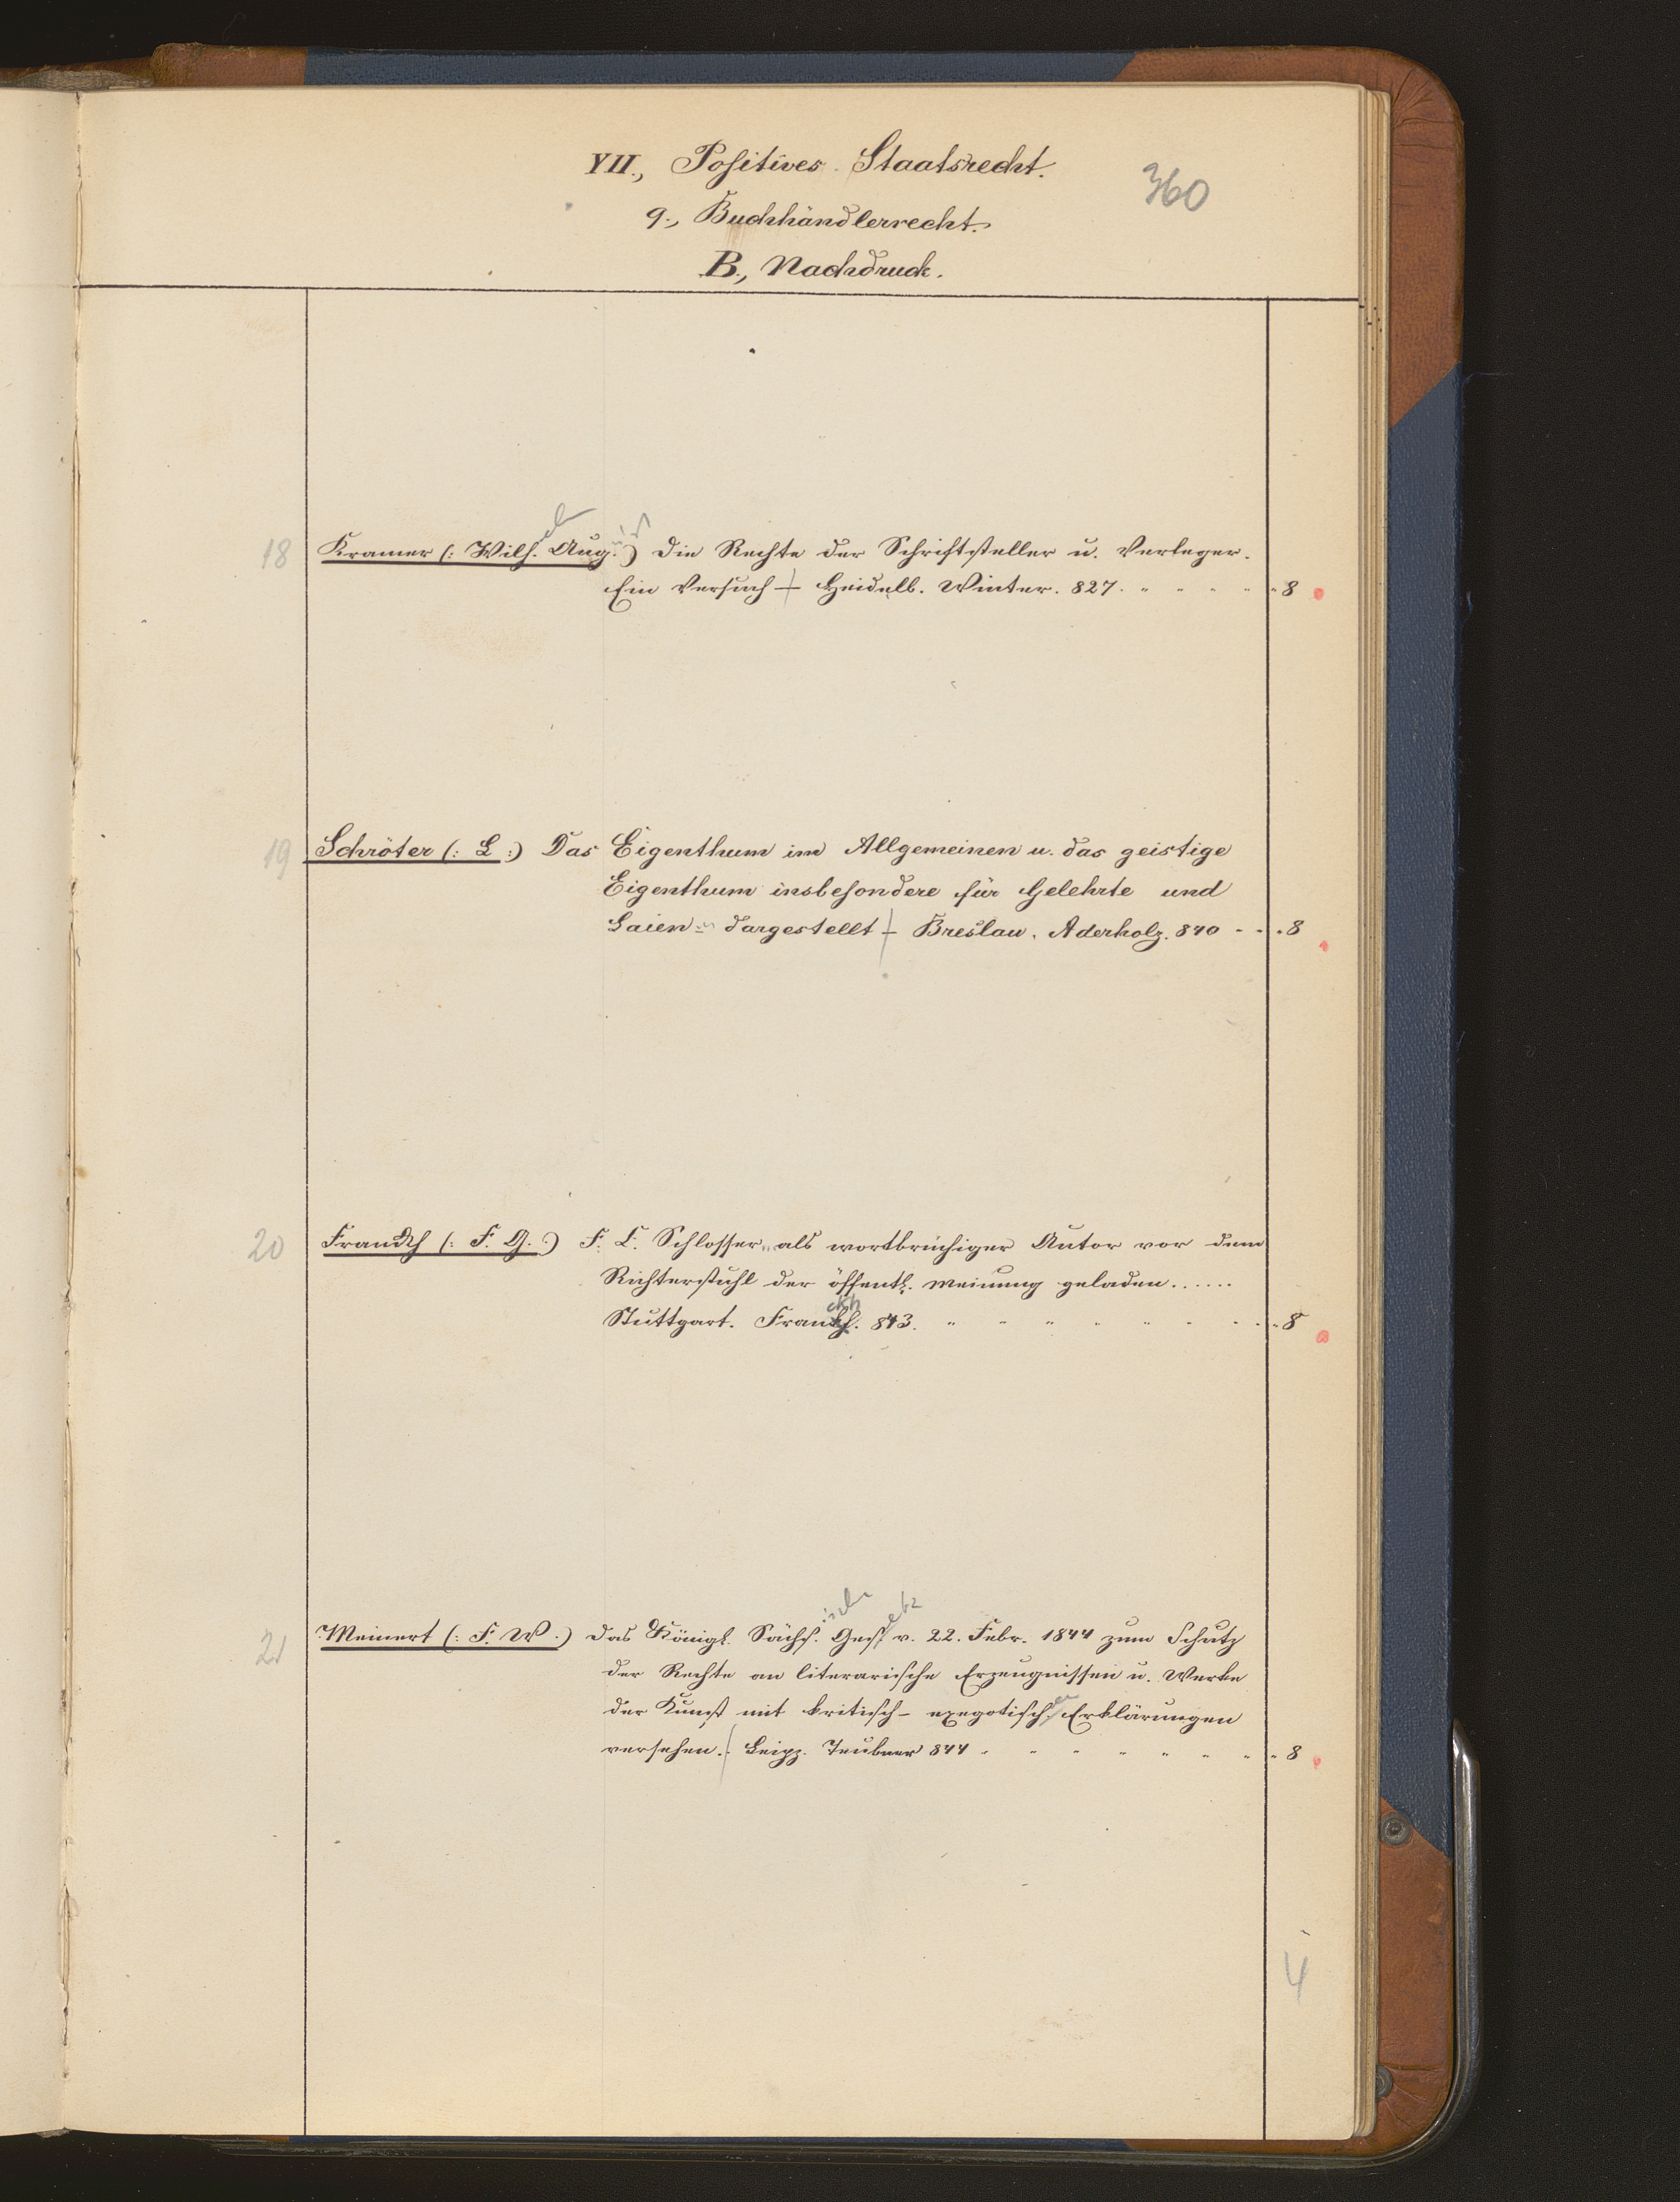 VII., Positives Staatsrecht.
360
9., Buchhändlerrecht.
B., Nachdruck.
18 Kramer (: Wilh. Aug. :) Die Rechte der Schriftsteller u. Verleger.
Ein Versuch – Heidelb. Winter. 827. 8
19 Schröter (: L :) Das Eigenthum im Allgemeinen u. das geistige
Eigenthum insbesondere für Gelehrte und
Laien dargestellt – Breslau. Aderholz. 840 8
20 Franckh (: F. G. :) F. C. Schlosser als wortbrüchiger Autor vor dem
Richterstuhl der öffentl. Meinung geladen......
ckh
Stuttgart. Franckh. 843. 8
isch etz
21 Meinert (: F. W. :) Das Königl. Sächs. Ges. v. 22. Febr. 1844 zum Schutz
der Rechte an literarische Erzeugnissen u. Werke
der Kunst mit kritisch-exegetisch. Erklärungen
versehen. Leipz. Teubner 844 8
4